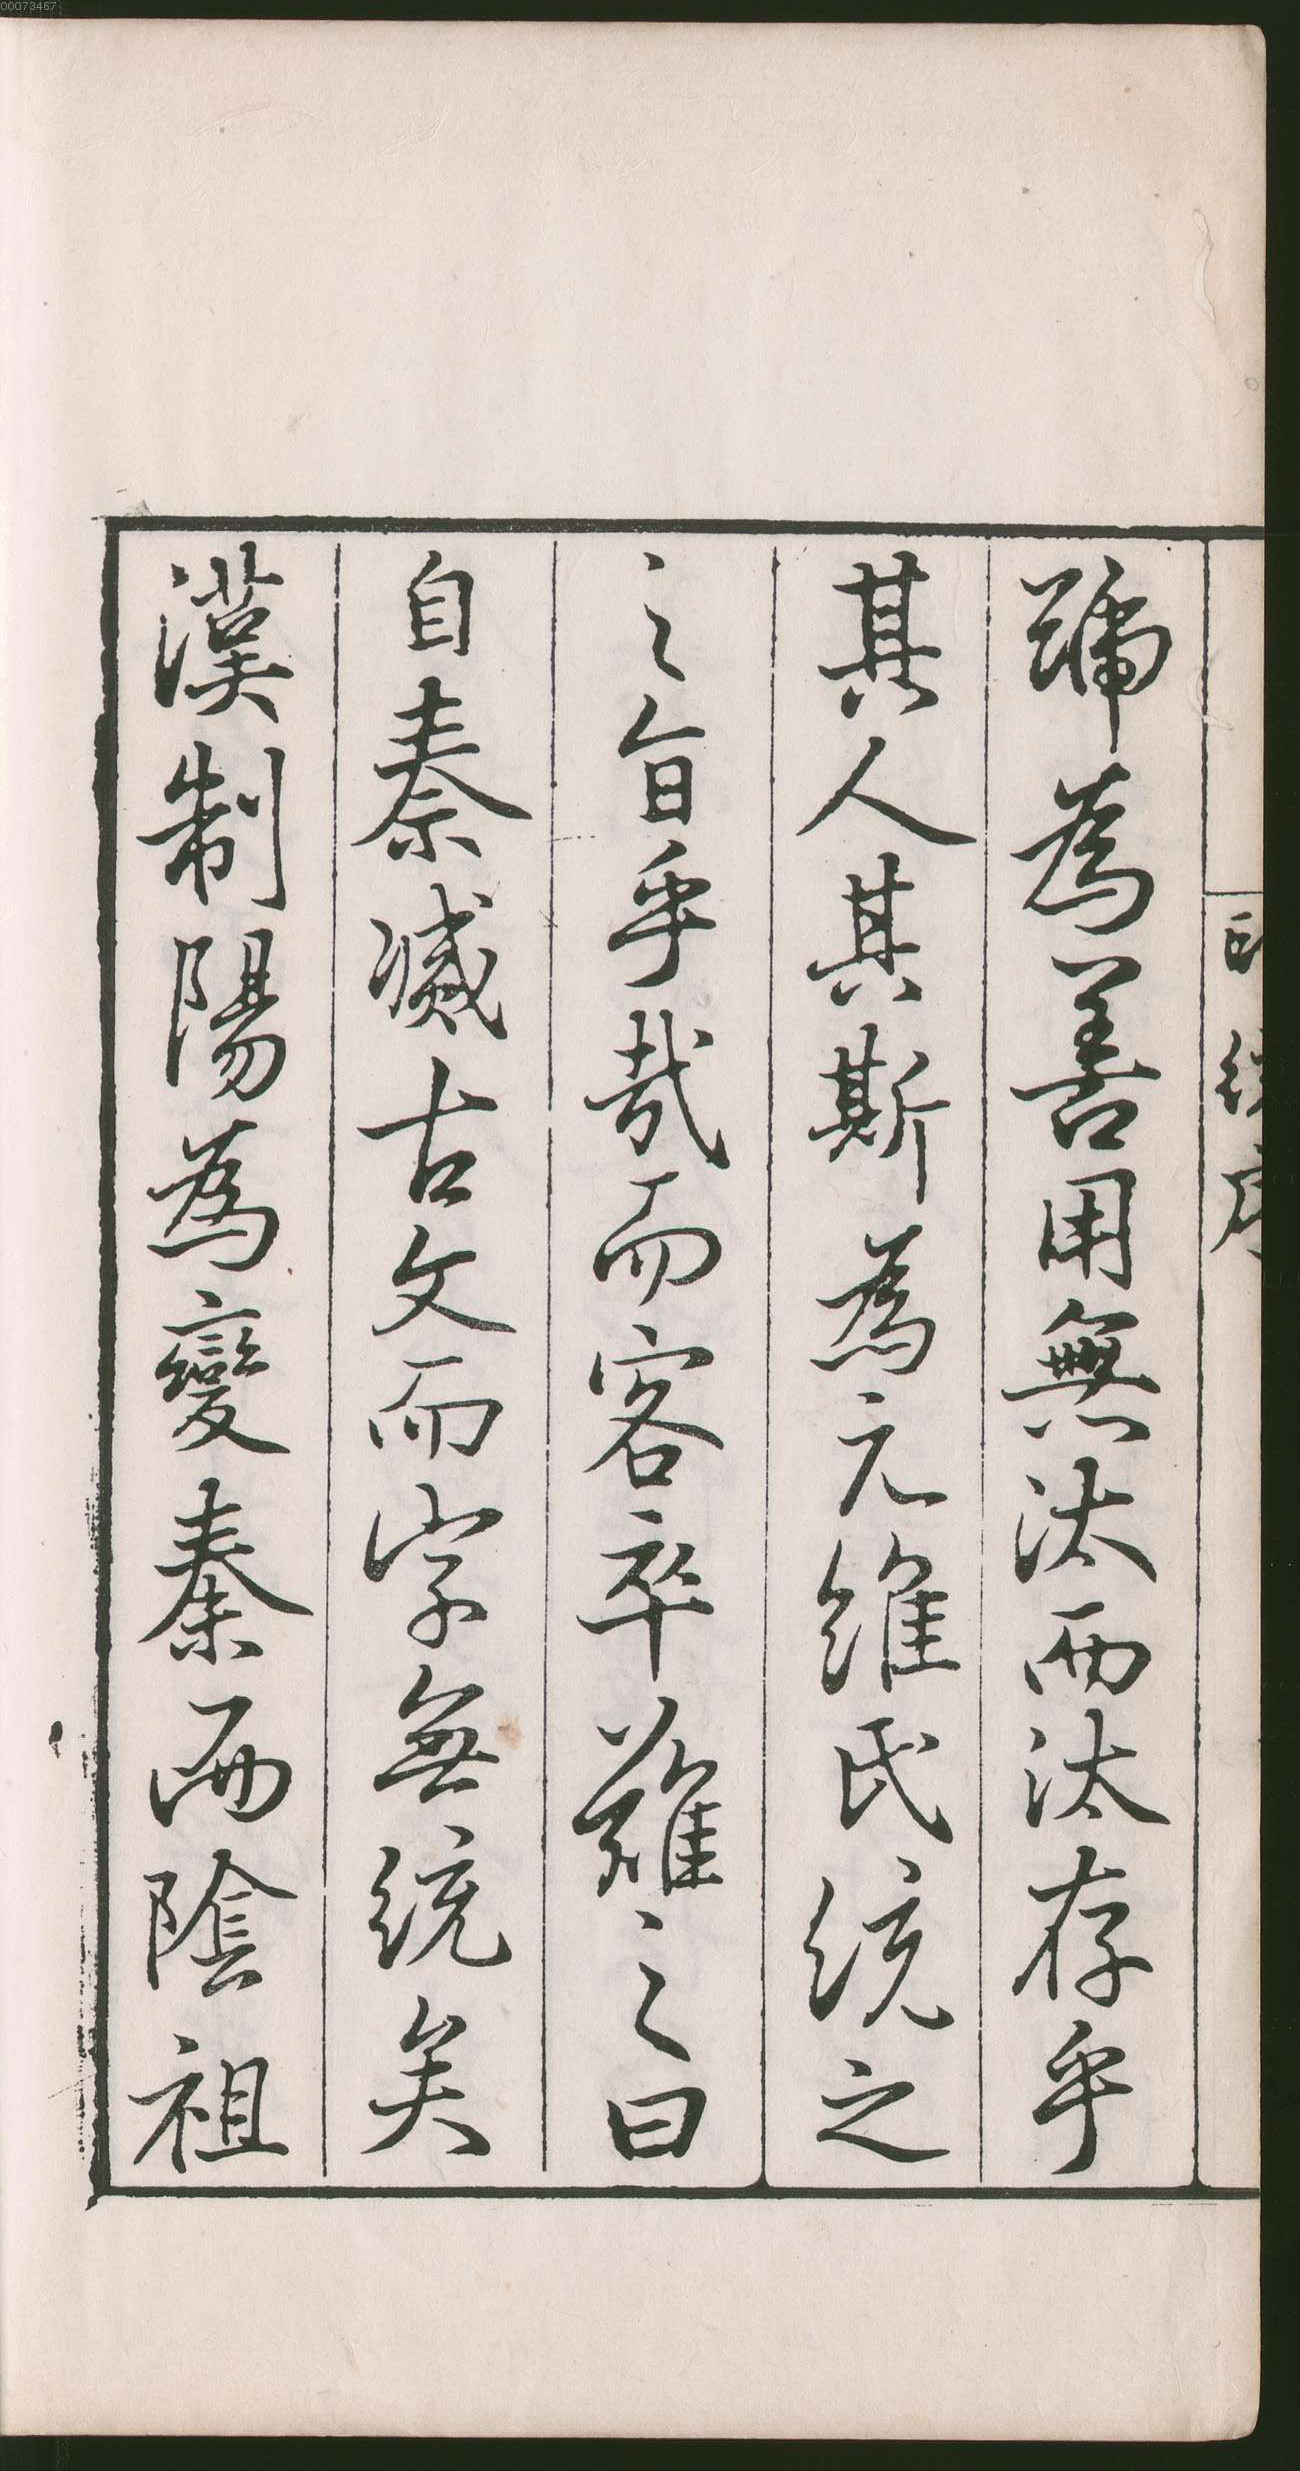 號為善用無汰而汰存乎
其人其斯為元維氏統之
之旨乎哉而客卒難之曰
自秦滅古文而字無統矣
漢制陽為變秦而陰祖
序
00073467